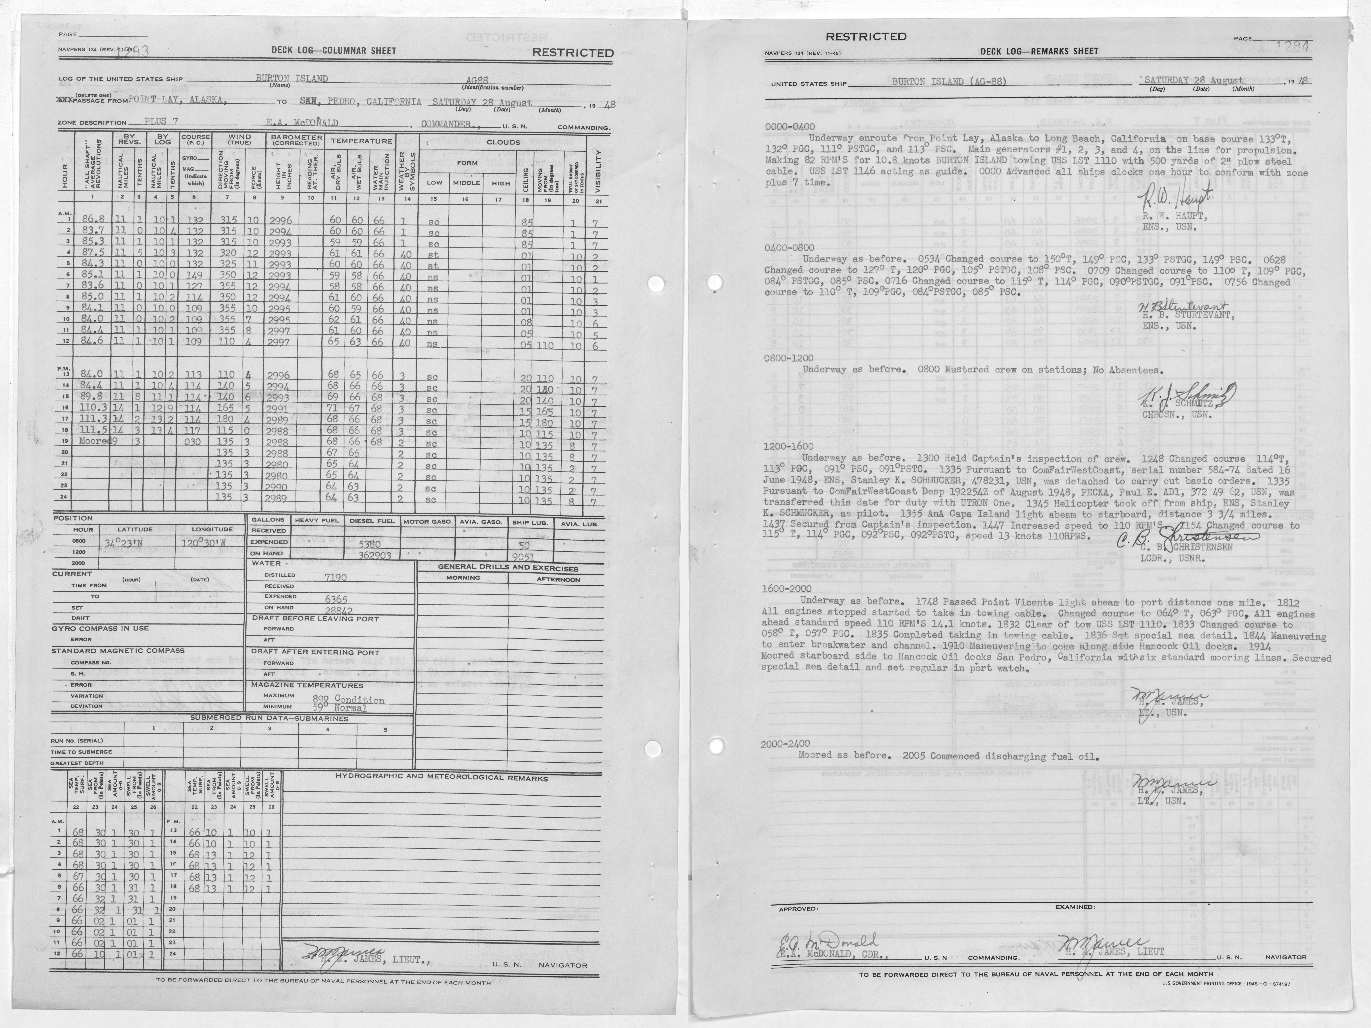 PAGE
NAVPERS 134 (REV. 11-45) 1283
DECK LOG—COLUMNAR SHEET
RESTRICTED
LOG OF THE UNITED STATES SHIP BURTON ISLAND AG88
(Name) (Identification number)
(DELETE ONE)
PASSAGE FROM POINT LAY, ALASKA, TO SAN, PEDRO, CALIFORNIA SATURDAY 28 August, 19 48
(Day) (Date) (Month)
ZONE DESCRIPTION PLUS 7 E.A. McDONALD, COMMANDER., U. S. N. COMMANDING.
HOUR
BY REVS.
BY LOG
COURSE (P. C.)
WIND (TRUE)
BAROMETER (CORRECTED)
TEMPERATURE
CLOUDS
VISIBILITY
FORM
LOW MIDDLE HIGH
CEILING
1 2 3 4 5 6 7 8 9 10 11 12 13 14 15 16 17 18 19 20 21
A.M.
1 86.8 11 1 10 1 132 315 10 2996 60 60 66 1 sc 85 1 7
2 83.7 11 0 10 4 132 315 10 2994 60 60 66 1 sc 85 1 7
3 85.3 11 1 10 1 132 315 10 2993 59 59 66 1 sc 85 1 7
4 87.5 11 5 10 3 132 320 12 2993 61 61 66 40 st 01 10 2
5 84.3 11 0 10 0 132 325 11 2993 60 60 66 40 st 01 10 2
6 85.1 11 1 10 0 149 350 12 2993 59 58 66 40 ns 01 10 2
7 83.6 11 0 10 1 127 355 12 2994 58 58 66 40 ns 01 10 1
8 85.0 11 1 10 2 114 350 12 2994 61 60 66 40 ns 01 10 3
9 84.1 11 0 10 0 109 355 10 2995 60 59 66 40 ns 01 10 3
10 84.0 11 0 10 2 109 355 7 2995 62 61 66 40 ns 08 10 6
11 84.4 11 1 10 1 109 355 8 2997 61 60 66 40 ns 05 10 5
12 84.6 11 1 10 1 109 110 4 2997 65 63 66 40 ns 05 110 10 6
P.M.
13 84.0 11 1 10 2 113 110 4 2996 68 65 66 3 sc 20 110 10 7
14 84.4 11 1 10 4 114 140 5 2994 68 66 66 3 sc 20 140 10 7
15 89.8 11 8 11 1 114 140 6 2993 69 66 68 3 sc 20 140 10 7
16 110.3 14 1 12 9 114 165 5 2991 71 67 68 3 sc 15 165 10 7
17 111.3 14 2 13 2 114 180 4 2989 68 66 68 3 sc 15 180 10 7
18 111.5 14 3 13 4 117 115 0 2988 68 66 68 3 sc 10 115 10 7
19 Moored9 3 030 135 3 2988 68 66 68 2 sc 10 135 8 7
20 135 3 2988 67 65 2 sc 10 135 8 7
21 135 3 2980 65 64 2 sc 10 135 2 7
22 135 3 2980 65 64 2 sc 10 135 2 7
23 135 3 2990 64 63 2 sc 10 135 2 7
24 135 3 2989 64 63 2 sc 10 135 8 7
POSITION
HOUR LATITUDE LONGITUDE
0800 34°23'N 120°30'W
1200
2000
CURRENT
(HOUR) (DATE)
TIME FROM
TO
SET
DRIFT
GYRO COMPASS IN USE
ERROR
STANDARD MAGNETIC COMPASS
COMPASS NO.
S. H.
ERROR
VARIATION
DEVIATION
GALLONS HEAVY FUEL DIESEL FUEL MOTOR GASO. AVIA. GASO. SHIP LUB. AVIA. LUB.
RECEIVED
EXPENDED 5380 50
ON HAND 362903 9051
WATER
DISTILLED 7190
RECEIVED
EXPENDED 6365
ON HAND 28842
DRAFT BEFORE LEAVING PORT
FORWARD
AFT
DRAFT AFTER ENTERING PORT
FORWARD
AFT
MAGAZINE TEMPERATURES
MAXIMUM 89° Condition
MINIMUM 59° Normal
GENERAL DRILLS AND EXERCISES
MORNING AFTERNOON
SUBMERGED RUN DATA—SUBMARINES
1 2 3 4 5
RUN NO. (SERIAL)
TIME TO SUBMERGE
GREATEST DEPTH
HYDROGRAPHIC AND METEOROLOGICAL REMARKS
22 23 24 25 26 22 23 24 25 26
A.M. P.M.
1 68 30 1 30 1 13 66 10 1 10 1
2 68 30 1 30 1 14 66 10 1 10 1
3 68 30 1 30 1 15 68 13 1 12 1
4 68 30 1 30 1 16 68 13 1 12 1
5 67 30 1 30 1 17 68 13 1 12 1
6 66 30 1 31 1 18 68 13 1 12 1
7 66 32 1 31 1 19
8 66 32 1 31 1 20
9 66 02 1 01 1 21
10 66 02 1 01 1 22
11 66 02 1 01 1 23
12 66 10 1 01 1 24
JAMES, LIEUT., U. S. N. NAVIGATOR
TO BE FORWARDED DIRECT TO THE BUREAU OF NAVAL PERSONNEL AT THE END OF EACH MONTH
RESTRICTED
PAGE 1284
NAVPERS 134 (REV. 11-45)
DECK LOG—REMARKS SHEET
UNITED STATES SHIP BURTON ISLAND (AG-88) SATURDAY 28 August, 19 48
(Day) (Date) (Month)
0000-0400
Underway enroute from Point Lay, Alaska to Long Beach, California on base course 133°T,
132° PGC, 111° PSTGC, and 113° PSC. Main generators #1, 2, 3, and 4, on the line for propulsion.
Making 82 RPM'S for 10.8 knots BURTON ISLAND towing USS LST 1110 with 500 yards of 2" plow steel
cable. USS LST 1146 acting as guide. 0000 Advanced all ships clocks one hour to conform with zone
plus 7 time.
R. W. Haupt
R. W. HAUPT,
ENS., USN.
0400-0800
Underway as before. 0534 Changed course to 150°T, 149° PGC, 133° PSTGC, 149° PSC. 0628
Changed course to 127° T, 120° PGC, 105° PSTGC, 108° PSC. 0709 Changed course to 110° T, 109° PGC,
084° PSTGC, 085° PSC. 0716 Changed course to 115° T, 114° PGC, 090°PSTGC, 091°PSC. 0756 Changed
course to 110° T, 109°PGC, 084°PSTGC, 085° PSC.
H B Sturtevant
H. B. STURTEVANT,
ENS., USN.
0800-1200
Underway as before. 0800 Mustered crew on stations; No Absentees.
K. J. Schmitz
K. J. SCHMITZ,
CHBOSN., USN.
1200-1600
Underway as before. 1300 Held Captain's inspection of crew. 1248 Changed course 114°T,
113° PGC, 091° PSC, 091°PSTC. 1335 Pursuant to ComFairWestCoast, serial number 584-74 dated 16
June 1948, ENS, Stanley K. SCHMUCKER, 478231, USN, was detached to carry out basic orders. 1335
Pursuant to ComFairWestCoast Desp 192254Z of August 1948, PECKA, Paul E. AD1, 372 49 62, USN, was
transferred this date for duty with UTRON One. 1345 Helicopter took off from ship, ENS, Stanley
K. SCHMUCKER, as pilot. 1355 Ana Capa Island light abeam to starboard, distance 3 3/4 miles.
1437 Secured from Captain's inspection. 1447 Increased speed to 110 RPM'S. 1154 Changed course to
115° T, 114° PGC, 092°PSC, 092°PSTC, speed 13 knots 110RPMS.
C. B. Christensen
C. B. CHRISTENSEN
LCDR., USNR.
1600-2000
Underway as before. 1748 Passed Point Vicente light abeam to port distance one mile. 1812
All engines stopped started to take in towing cable. Changed course to 064° T, 063° PGC, All engines
ahead standard speed 110 RPM'S 14.1 knots. 1832 Clear of tow USS LST 1110. 1833 Changed course to
058° T, 057° PGC. 1835 Completed taking in towing cable. 1836 Set special sea detail. 1844 Maneuveing
to enter breakwater and channel. 1910 Maneuvering to come along side Hancock Oil docks. 1914
Moored starboard side to Hancock Oil docks San Pedro, California withsix standard mooring lines. Secured
special sea detail and set regular in port watch.
H. M. JAMES,
LT., USN.
2000-2400
Moored as before. 2005 Commenced discharging fuel oil.
H. M. JAMES,
LT., USN.
APPROVED: EXAMINED:
E.A. McDonald
E.A. McDONALD, CDR., U. S. N COMMANDING. JAMES, LIEUT U. S. N. NAVIGATOR
TO BE FORWARDED DIRECT TO THE BUREAU OF NAVAL PERSONNEL AT THE END OF EACH MONTH
U. S. GOVERNMENT PRINTING OFFICE